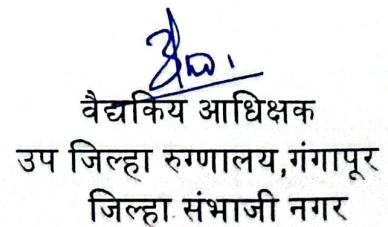 वैद्यकिय आधिक्षक
उप जिल्हा रुग्णालय,गंगापूर
जिल्हा संभाजी नगर